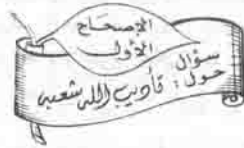 الإصحاح
الأول
سؤال
حول : تأديب الله شعبه